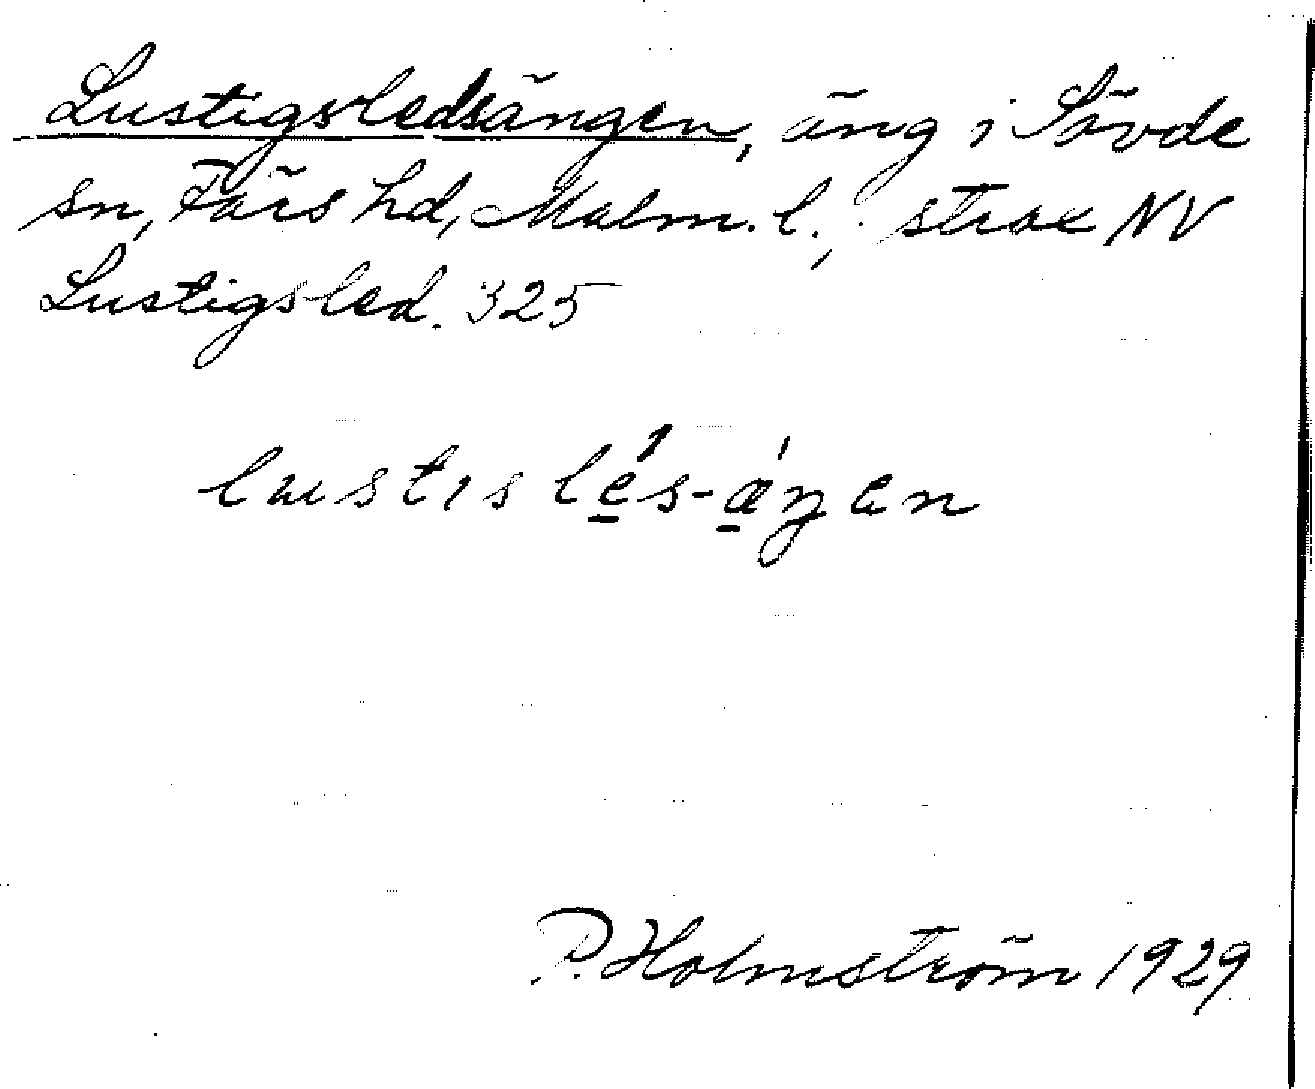 Lustigsledsängen, äng i Sövde
sn, Färs hd, Malm. l., strax NV
Lustigsled. 325
lustis lés-ä́ŋen
P. Holmström 1929